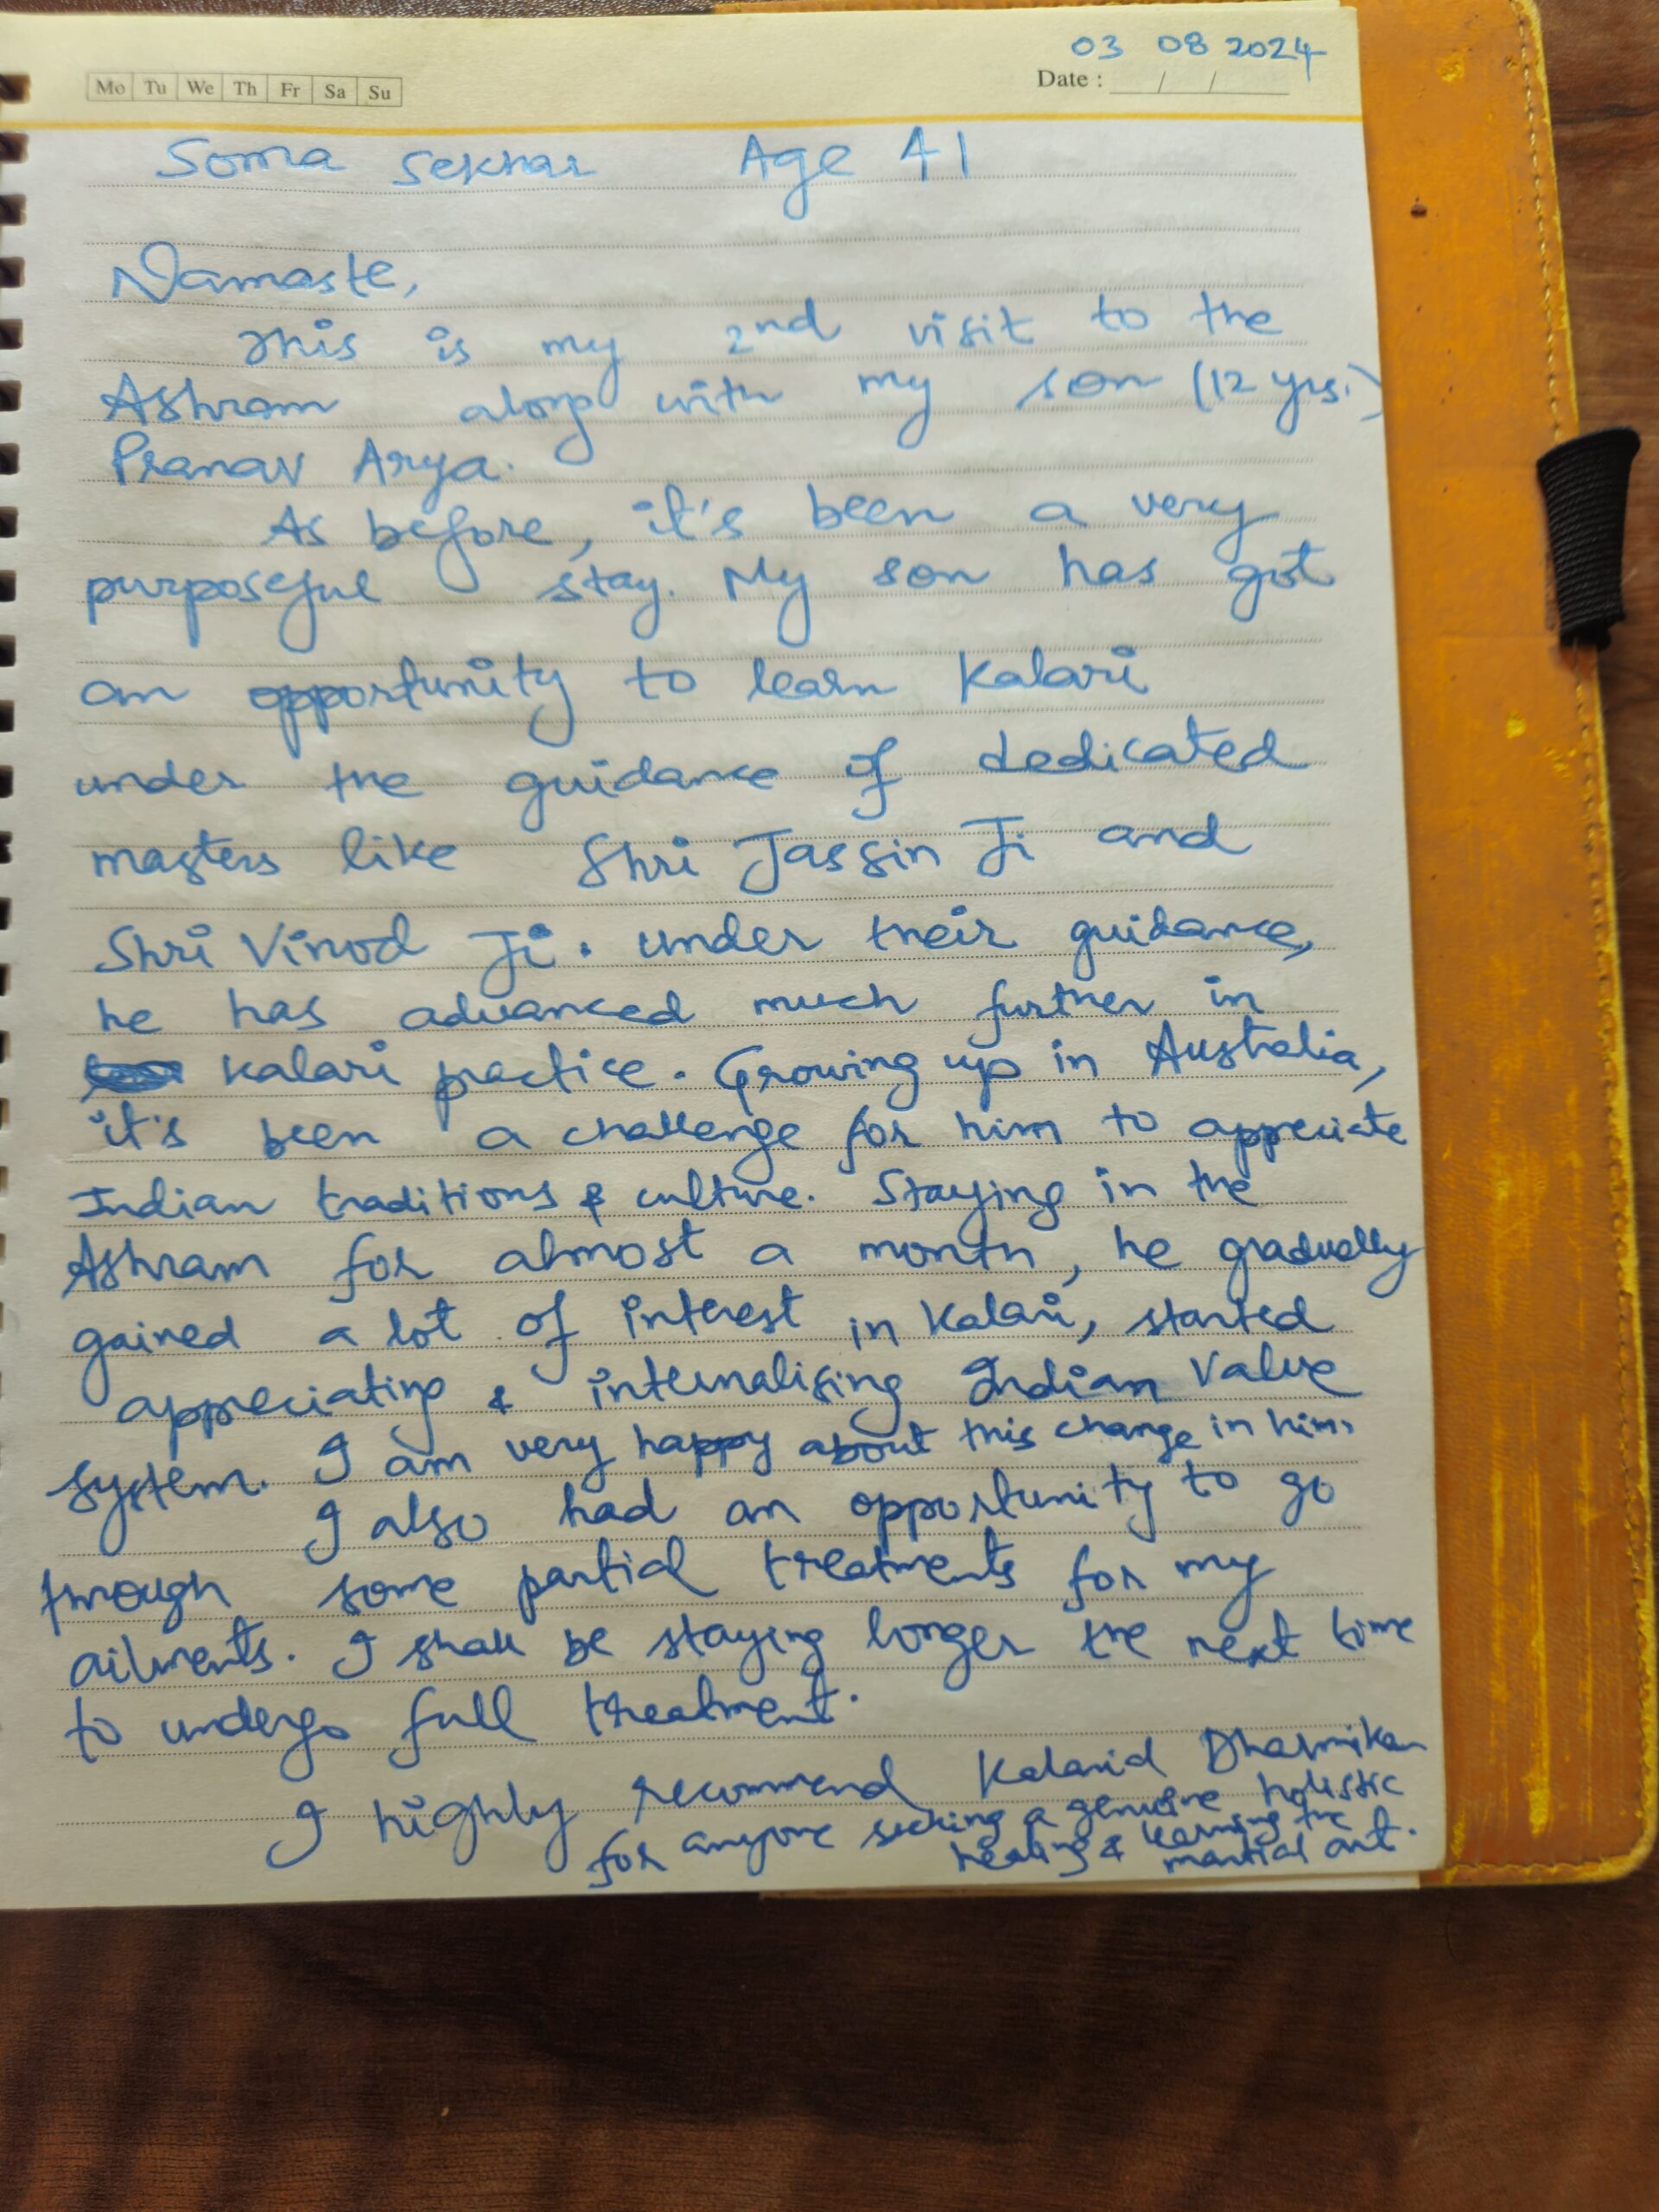 03 08 2024
Mo Tu We Th Fr Sa Su
Date : / /
Soma Sekhar Age 41
Namaste,
This is my 2nd visit to the
Ashram along with my son (12 yrs.)
Pranav Arya.
As before, it's been a very
purposeful stay. My son has got
an opportunity to learn Kalari
under the guidance of dedicated
masters like Shri Jassin Ji and
Shri Vinod Ji. under their guidance,
he has advanced much further in
kalari practice. Growing up in Australia,
it's been a challenge for him to appreciate
Indian traditions & culture. Staying in the
Ashram for almost a month, he gradually
gained a lot of interest in Kalari, started
appreciating & internalising Indian Value
system. I am very happy about this change in him.
I also had an opportunity to go
through some partial treatments for my
ailments. I shall be staying longer the next time
to undergo full treatment.
I highly recommend Kalarid Dharmikam
for anyone seeking a genuine holistic
healing & learning the
martial art.